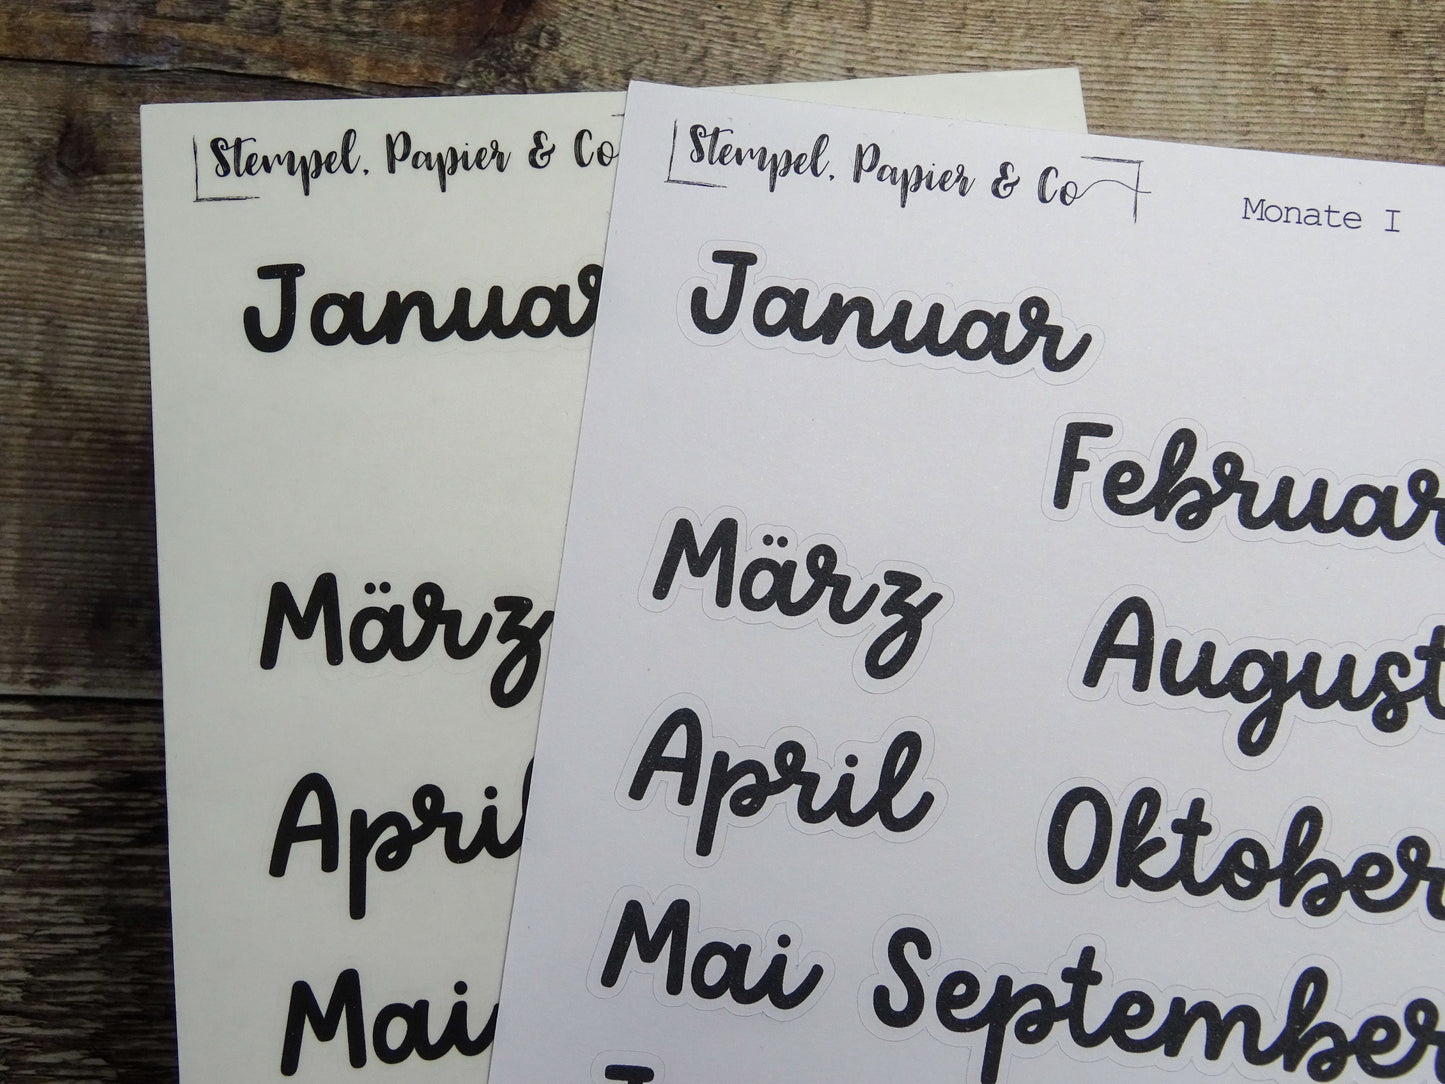 Stempel, Papier & Co
Januar
März
April
Mai
Stempel, Papier & Co
Monate I
Januar
Februar
März
August
April
Oktober
Mai
September